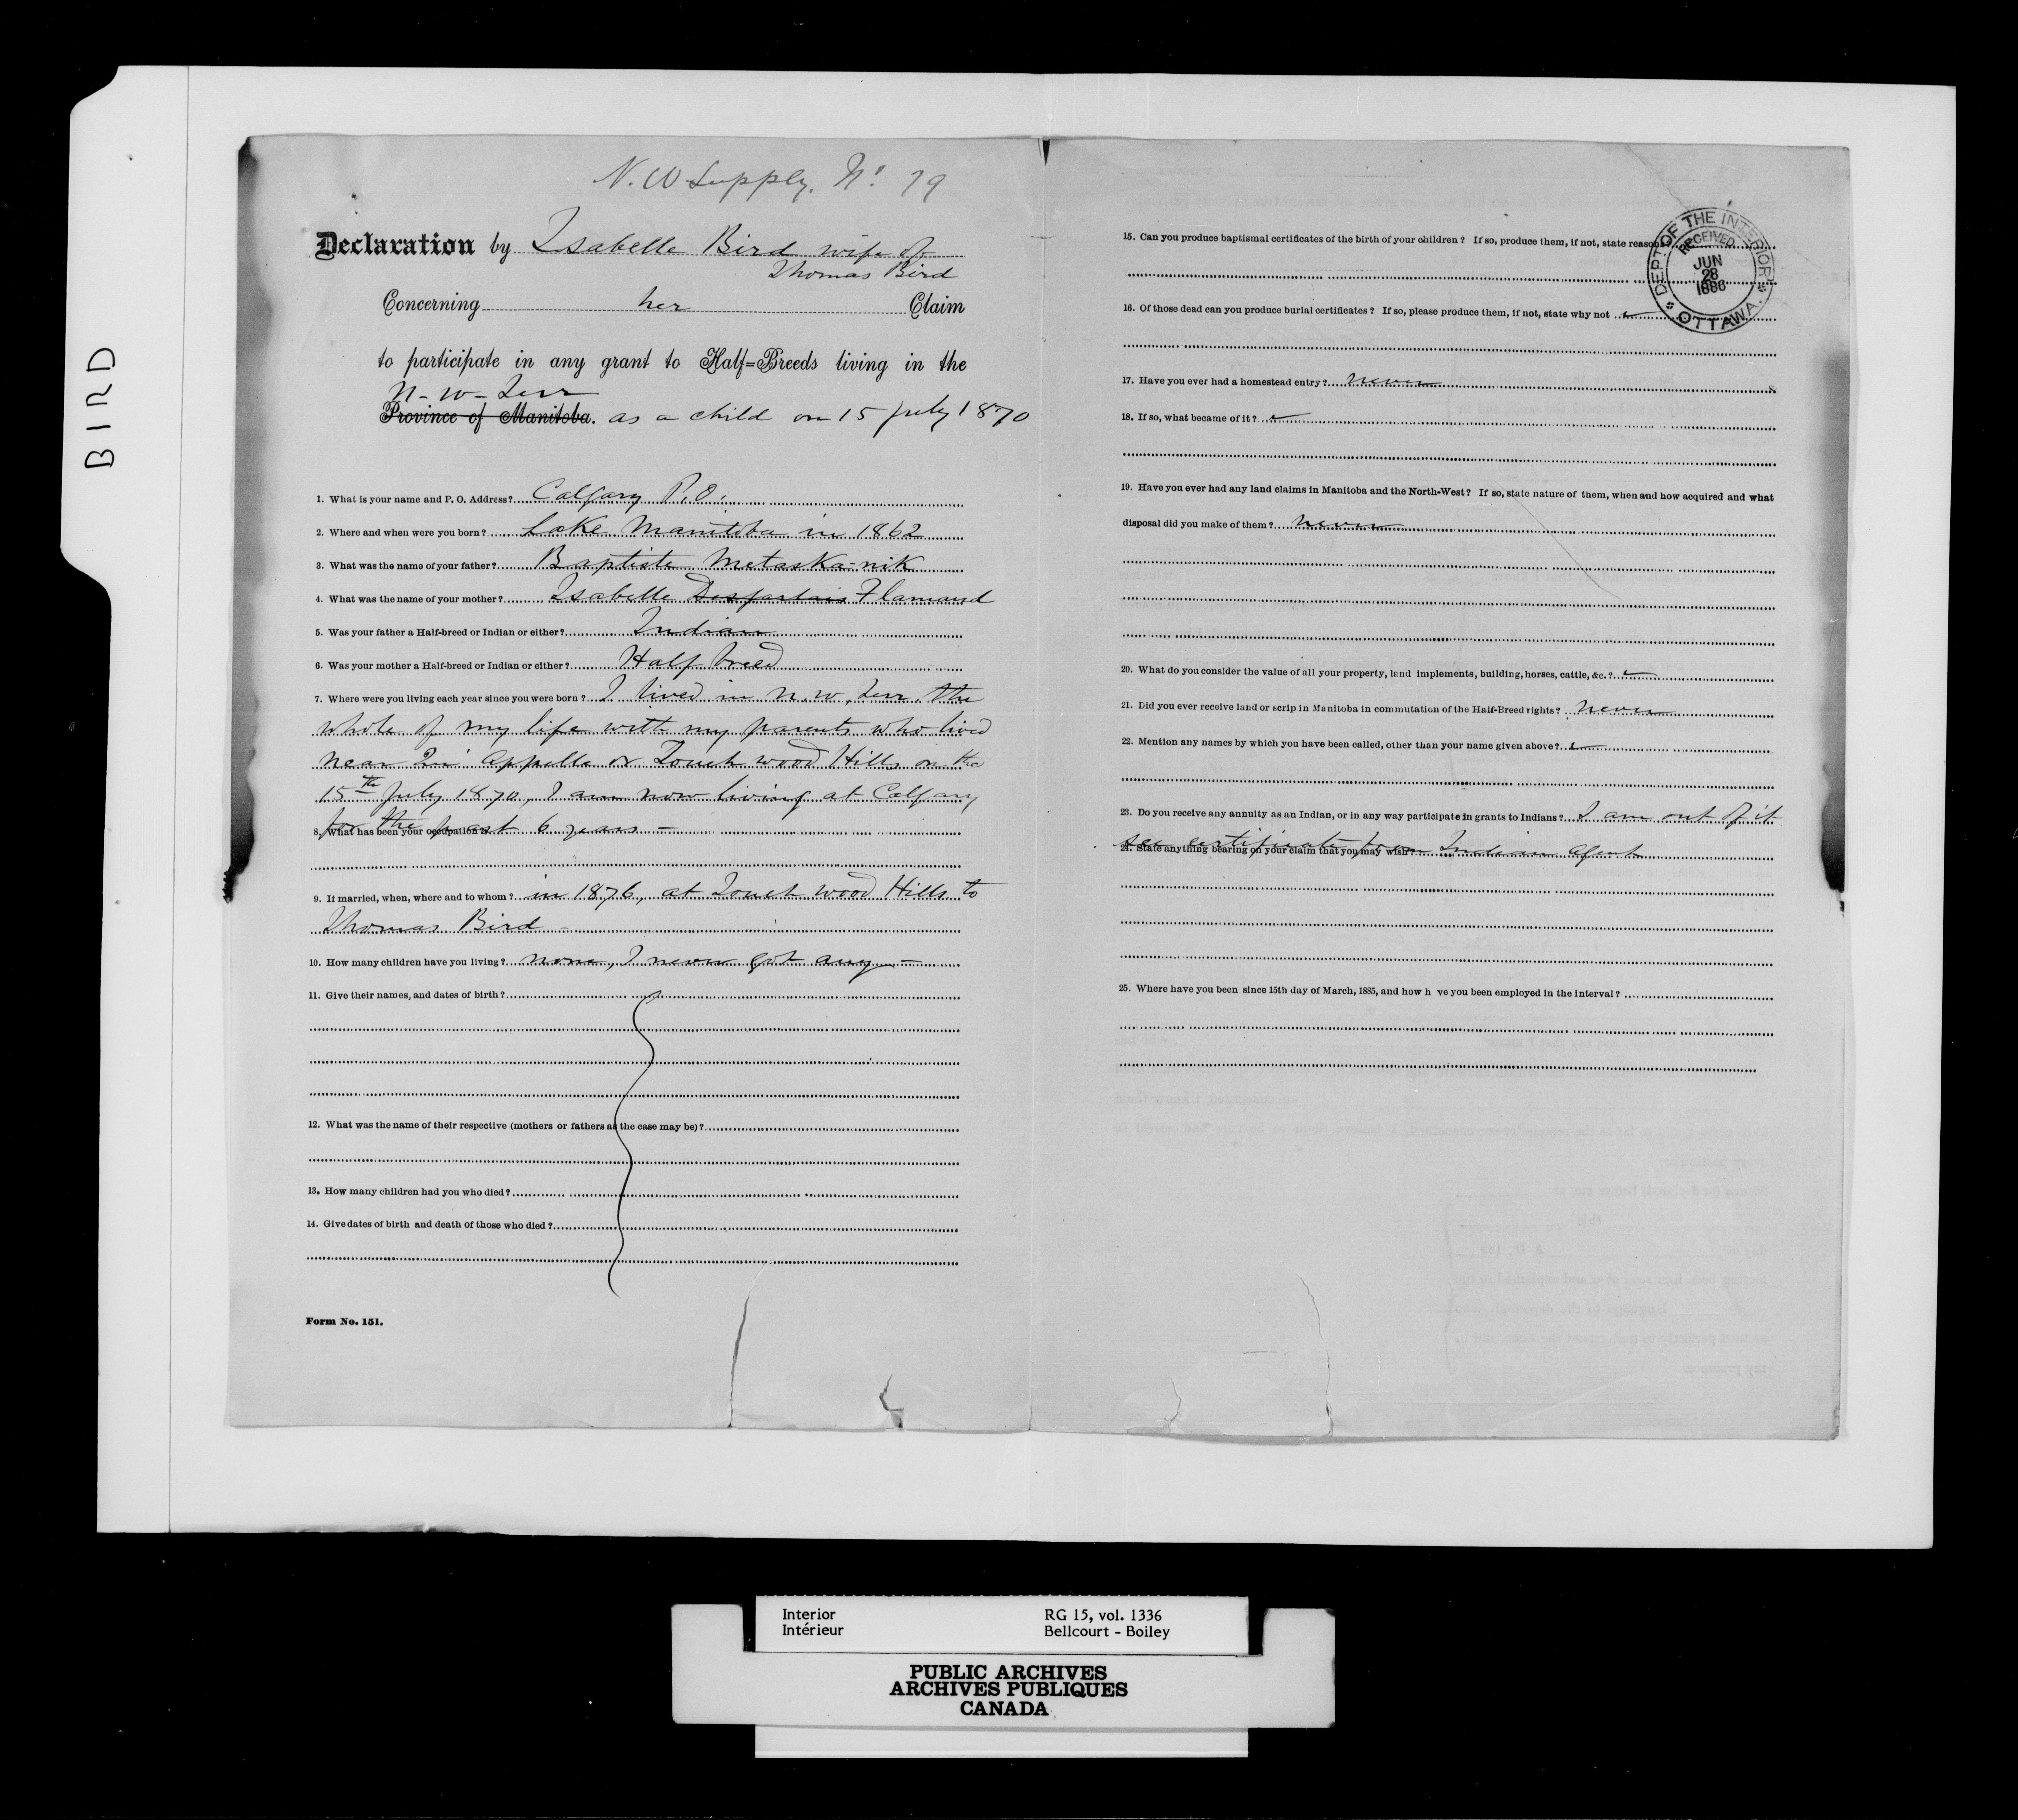 BIRD
N. W Supply. No. 79
Declaration by Isabelle Bird wife of
Thomas Bird
Concerning her Claim
to participate in any grant to Half=Breeds living in the
N-W-Terr
Province of Manitoba. as a child on 15 July 1870
1. What is your name and P. O. Address? Calgary P.O.
2. Where and when were you born? Lake Manitoba in 1862
3. What was the name of your father? Baptiste Metaska-nik
4. What was the name of your mother? Isabelle Desjarlais Flamand
5. Was your father a Half-breed or Indian or either? Indian
6. Was your mother a Half-breed or Indian or either? Half breed
7. Where were you living each year since you were born? I lived in N.W. Terr. the
whole of my life with my parents who lived
near Qu'Appelle or Touch wood Hills on the
15th July 1870, I am now living at Calgary
for the past 6 years -
8. What has been your occupation?
9. If married, when, where and to whom? in 1876, at Touch wood Hills to
Thomas Bird -
10. How many children have you living? none, I never got any -
11. Give their names, and dates of birth?
12. What was the name of their respective (mothers or fathers as the case may be)?
13. How many children had you who died?
14. Give dates of birth and death of those who died?
Form No. 151.
15. Can you produce baptismal certificates of the birth of your children? If so, produce them, if not, state reason
DEPT. OF THE INTERIOR
RECEIVED
JUN
28
1886
OTTAWA.
16. Of those dead can you produce burial certificates? If so, please produce them, if not, state why not
17. Have you ever had a homestead entry? never
18. If so, what became of it?
19. Have you ever had any land claims in Manitoba and the North-West? If so, state nature of them, when and how acquired and what
disposal did you make of them? never
20. What do you consider the value of all your property, land implements, building, horses, cattle, &c.?
21. Did you ever receive land or scrip in Manitoba in commutation of the Half-Breed rights? never
22. Mention any names by which you have been called, other than your name given above?
23. Do you receive any annuity as an Indian, or in any way participate in grants to Indians? I am out of it
see certificate from Indian Agent
24. State anything bearing on your claim that you may wish?
25. Where have you been since 15th day of March, 1885, and how h ve you been employed in the interval?
Interior RG 15, vol. 1336
Intérieur Bellcourt - Boiley
PUBLIC ARCHIVES
ARCHIVES PUBLIQUES
CANADA